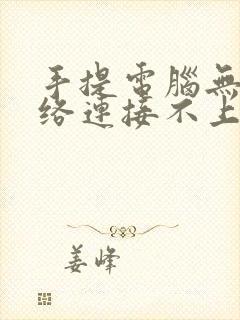 手提電腦無
络連接不上
姜峰